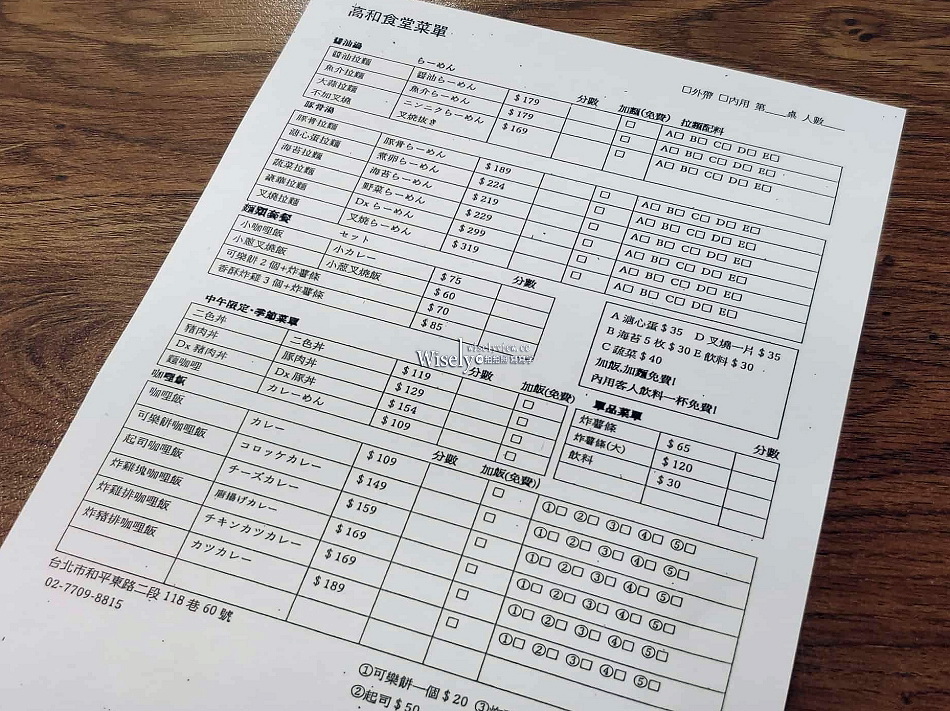 高和食堂菜單
□外帶 □內用 第___桌 人數___
醬油鍋 らーめん 分數 加麵(免費) 拉麵配料
醬油拉麵 醬油らーめん $179 □ A□ B□ C□ D□ E□
魚介拉麵 魚介らーめん $179 □ A□ B□ C□ D□ E□
大蒜拉麵 ニンニクらーめん $169 □ A□ B□ C□ D□ E□
不加叉燒 叉燒抜き
豚骨鍋
豚骨拉麵 豚骨らーめん $189 □ A□ B□ C□ D□ E□
溏心蛋拉麵 煮卵らーめん $224 □ A□ B□ C□ D□ E□
海苔拉麵 海苔らーめん $219 □ A□ B□ C□ D□ E□
蔬菜拉麵 野菜らーめん $229 □ A□ B□ C□ D□ E□
豪華拉麵 Dxらーめん $299 □ A□ B□ C□ D□ E□
叉燒拉麵 叉燒らーめん $319 □ A□ B□ C□ D□ E□
麵類套餐 セット 分數
小咖哩飯 小カレー $75
小蔥叉燒飯 小葱叉燒飯 $60
可樂餅2個+炸薯條 $70
香酥炸雞3個+炸薯條 $85
A 溏心蛋 $35 D 叉燒一片 $35
B 海苔5枚 $30 E 飲料 $30
C 蔬菜 $40
加飯,加麵免費!
內用客人飲料一杯免費!
中午限定·季節菜單 分數 加飯(免費)
二色丼 二色丼 $119 □
豬肉丼 豚肉丼 $129 □
Dx豬肉丼 Dx豚丼 $154 □
麵咖哩 カレーめん $109 □
單品菜單 分數
炸薯條 $65
炸薯條(大) $120
飲料 $30
咖哩飯 分數 加飯(免費))
咖哩飯 カレー $109 □ ①□ ②□ ③□ ④□ ⑤□
可樂餅咖哩飯 コロッケカレー $149 □ ①□ ②□ ③□ ④□ ⑤□
起司咖哩飯 チーズカレー $159 □ ①□ ②□ ③□ ④□ ⑤□
炸雞塊咖哩飯 唐揚げカレー $169 □ ①□ ②□ ③□ ④□ ⑤□
炸雞排咖哩飯 チキンカツカレー $169 □ ①□ ②□ ③□ ④□ ⑤□
炸豬排咖哩飯 カツカレー $189 □ ①□ ②□ ③□ ④□ ⑤□
台北市和平東路二段118巷60號
02-7709-8815
①可樂餅一個 $20 ③炸
②起司 $50
Wisely
wiselyview.cc